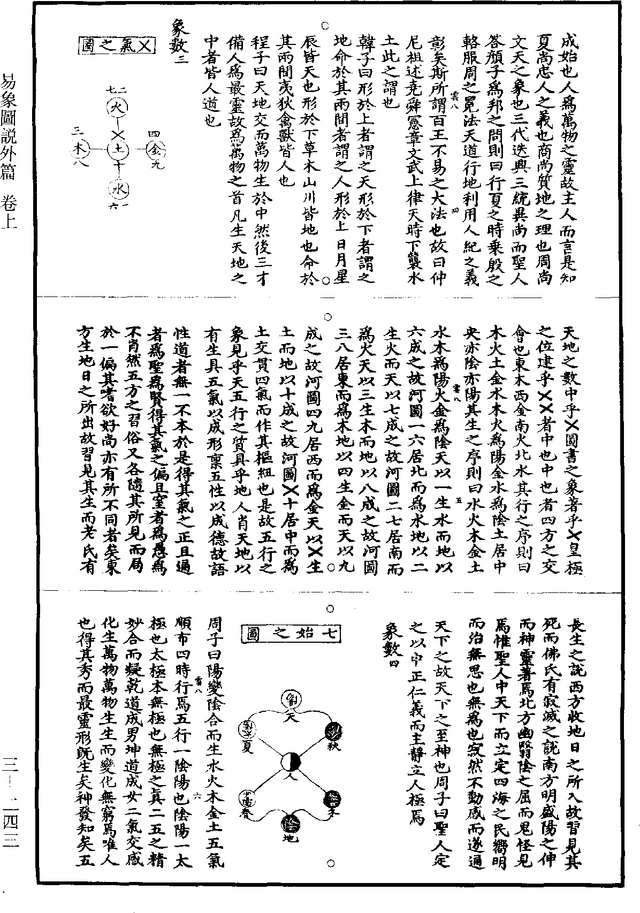 成始也人爲萬物之靈故主人而言是知
夏尚忠人之義也商尚質地之理也周尚
文天之象也三代迭興三統異尚而聖人
答顏子爲邦之問則曰行夏之時乘殷之
輅服周之冕法天道行地利用人紀之義
彰矣斯所謂百王不易之大法也故曰仲
尼祖述堯舜憲章文武上律天時下襲水
土此之謂也
韓子曰形於上者謂之天形於下者謂之
地命於其兩間者謂之人形於上日月星
辰皆天也形於下草木山川皆地也命於
其兩間夷狄禽獸皆人也
程子曰天地交而萬物生於中然後三才
備人爲最靈故爲萬物之首凡生天地之
中者皆人道也
象數三
㐅氣之圖
七火二
三木八
土
四金九
水
六一
天地之數中乎㐅圖書之象著乎㐅皇極
之位建乎㐅㐅者中也中也者四方之交
會也東木西金南火北水其行之序則曰
木火土金水木火爲陽金水爲陰土居中
央亦陰亦陽其生之序則曰水火木金土
水木爲陽火金爲陰天以一生水而地以
六成之故河圖一六居北而爲水地以二
生火而天以七成之故河圖二七居南而
爲火天以三生木而地以八成之故河圖
三八居東而爲木地以四生金而天以九
成之故河圖四九居西而爲金天以㐅生
土而地以十成之故河圖㐅十居中而爲
土交貫四氣而作其樞紐也是故五行之
象見乎天五行之質具乎地人肖天地以
有生具五氣以成形禀五性以成德故語
性道者無一不本於是得其氣之正且通
者爲聖爲賢得其氣之偏且窒者爲愚爲
不肖然五方之習俗又各隨其所見而局
於一偏其嗜欲好尚亦有所不同者矣東
方生地日之所出故習見其生而老氏有
長生之說西方收地日之所入故習見其
死而佛氏有寂滅之說南方明盛陽之伸
而神靈著焉北方幽翳陰之屈而鬼怪見
焉惟聖人中天下而立定四海之民嚮明
而治無思也無爲也寂然不動感而遂通
天下之故天下之至神也周子曰聖人定
之以中正仁義而主靜立人極焉
象數四
七始之圖
天
夏
秋
人
春
冬
地
周子曰陽變陰合而生水火木金土五氣
順布四時行焉五行一陰陽也陰陽一太
極也太極本無極也無極之真二五之精
妙合而凝乾道成男坤道成女二氣交感
化生萬物萬物生生而變化無窮焉唯人
也得其秀而最靈形既生矣神發知矣五
易象圖說外篇 卷上
三—二四三